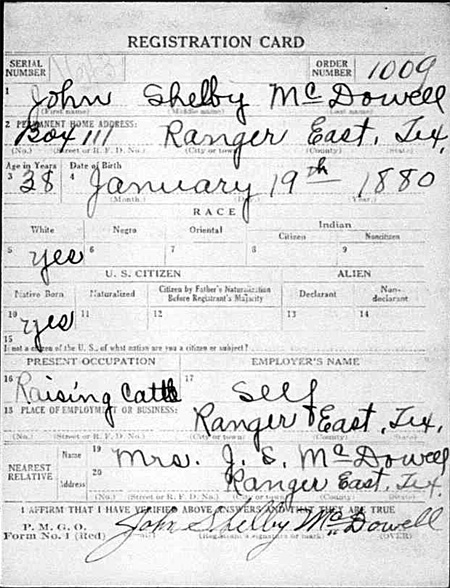 REGISTRATION CARD
SERIAL NUMBER ORDER NUMBER 1009
1 John Shelby McDowell
(First name) (Middle name) (Last name)
2 PERMANENT HOME ADDRESS:
Box 111 Ranger East. Tex.
(No.) (Street or R. F. D. No.) (City or town) (County) (State)
Age in Years Date of Birth
3 38 4 January 19th 1880
(Month.) (Day.) (Year.)
RACE
White Negro Oriental Indian
Citizen Noncitizen
5 yes 6 7 8 9
U. S. CITIZEN ALIEN
Native Born Naturalized Citizen by Father's Naturalization Before Registrant's Majority Declarant Non-declarant
10 yes 11 12 13 14
15
If not a citizen of the U. S., of what nation are you a citizen or subject?
PRESENT OCCUPATION EMPLOYER'S NAME
16 Raising Cattle 17 Self
18 PLACE OF EMPLOYMENT OR BUSINESS: Ranger East. Tex.
(No.) (Street or R. F. D. No.) (City or town) (County) (State)
NEAREST RELATIVE Name 19 Mrs. J. S. McDowell
Address 20 Ranger East. Tex.
(No.) (Street or R. F. D. No.) (City or town) (County) (State)
I AFFIRM THAT I HAVE VERIFIED ABOVE ANSWERS AND THAT THEY ARE TRUE
P. M. G. O.
Form No. 1 (Red) John Shelby McDowell
(Registrant's signature or mark) (OVER)